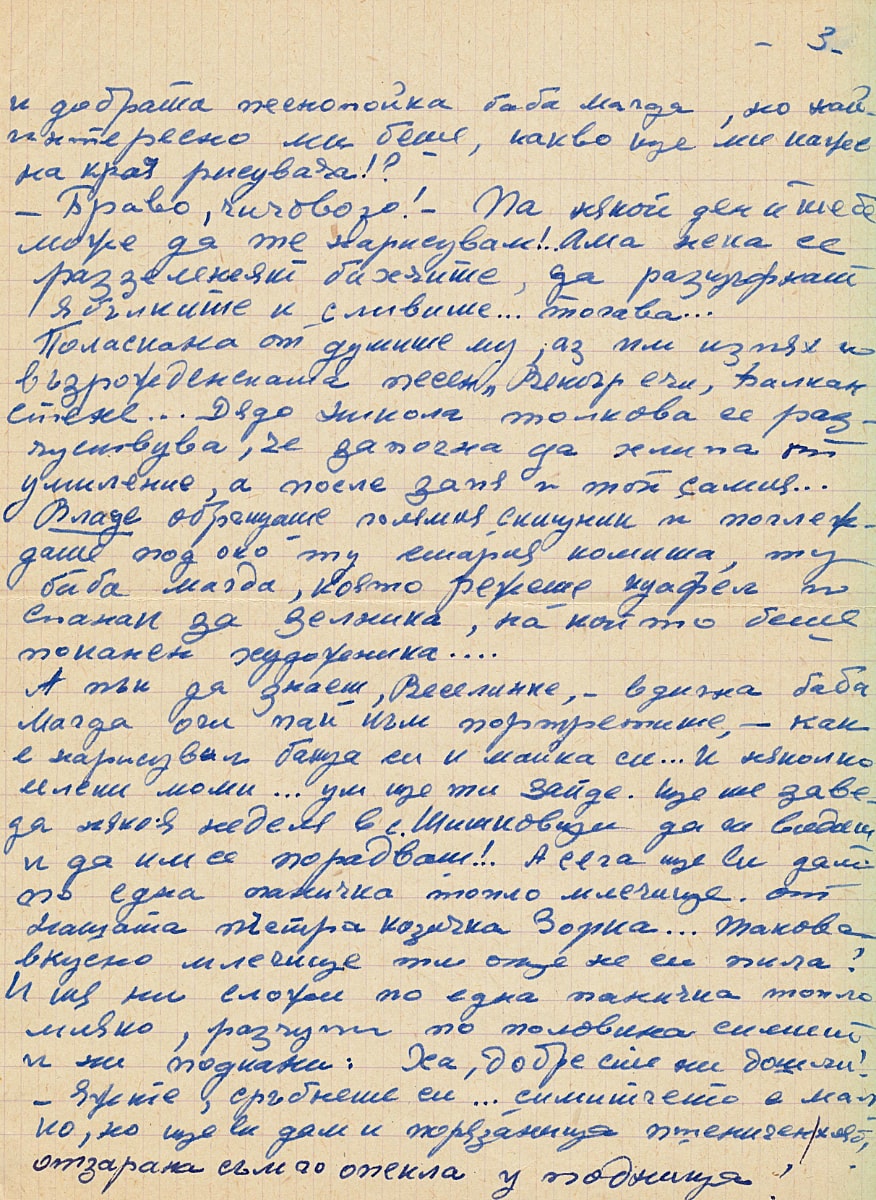 - 3 -
и добрата песнопойка баба Магда, но най-
интересно ми беше, какво ще ми каже
на края рисувача!?
- Браво, чичовозо! - Па някой ден и тебе
може да те нарисувам!.. Ама нека се
раззеленеят бахчите, да разцъфнат
ябълките и сливите... тогава...
Поласкана от думите му, аз им изпях и
възрожденската песен „Вятър ечи, Балкан
стене... Дядо Никола толкова се раз-
чувствува, че започна да хлипа от
умиление, а после запя и той самия...
Владо обръщаше големия скицник и поглеж-
даше под око ту стария комита, ту
баба Магда, която режеше
спанак за зелника, на който беше
поканен художника....
А пък да знаеш, Веселинке, - вдигна баба
Магда очи към портретите, - как
е нарисувал баща си и майка си... И няколко
селски моми... ум ще ти зайде. Ще те заве-
да някоя неделя в с. Шишковци да ги видиш
и да им се порадваш!. А сега ще ви дам
по една паничка топло млечице от
нашата пъстра козичка Зорка... Такова
вкусно млечице ти още не си пила!
И тя ни сложи по една паничка топло
мляко, разчупи по половина симит
и ни подкани: Ха, добре сте ни дошли!
- Яжте, сръбнете си... симитчето е мал-
ко, но ще ви дам и порязаница пшеничен хляб,
отзарана съм го опекла у подница!